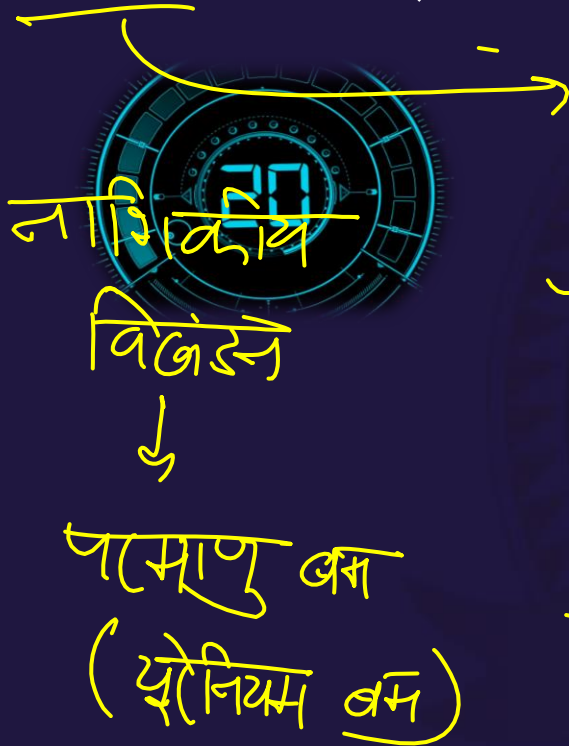 20
नाभिकीय
विखंडन
परमाणु बम
(यूरेनियम बम)